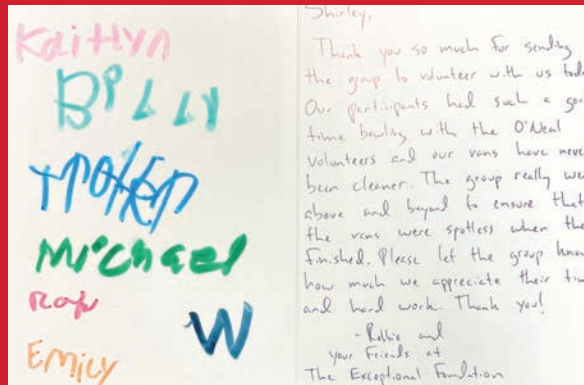 Kaitlyn
BiLLY
Michael
W
EMILY
Shirley,
Thank you so much for sending
the group to volunteer with us
Our participants had such a
time bowling with the O'Neal
volunteers and our vans have
been cleaner. The group really
above and beyond to ensure that
the vans were spotless when
finished. Please let the group
how much we appreciate their
and hard work. Thank you!
- Robbie and
your Friends at
The Exceptional Foundation